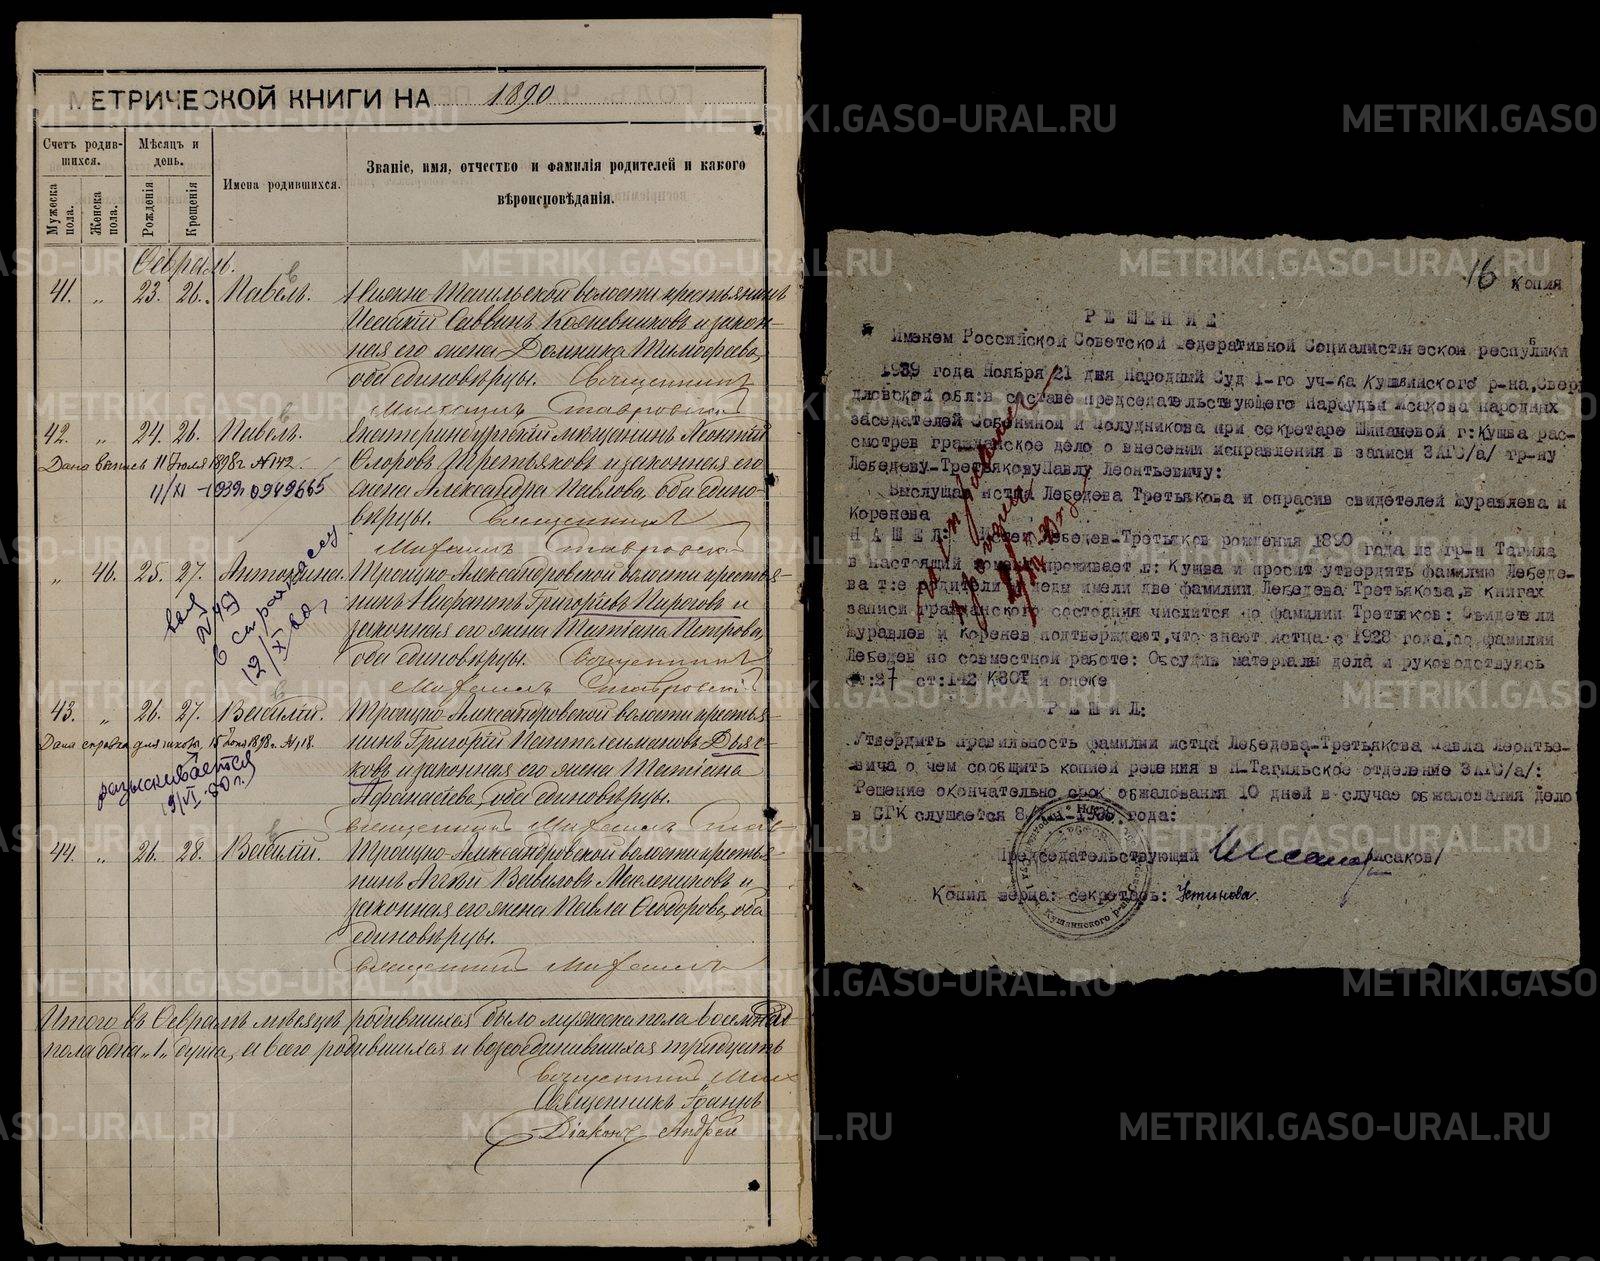 МЕТРИЧЕСКОЙ КНИГИ НА 1890
Счетъ родив-
шихся.
Мѣсяцъ и
день.
Мужеска
пола.
Женска
пола.
Рожденія
Крещенія
Имена родившихся.
Званіе, имя, отчество и фамилія родителей и какого
вѣроисповѣданія.
Февраль.
41. „ 23. 26. Павелъ. Нижне Тагильской волости крестьянинъ
Саввинъ Кожевниковъ и закон-
ная его жена Домника Тимофеева,
оба единовѣрцы. Священникъ
Михаилъ Ставровскій
42. „ 24. 26. Павелъ. Екатеринбургскій мѣщанинъ Леонтій
Дана выпись 11 Іюля 1898 г. № 142.
Третьяковъ и законная его
11/XI - 1939 г. 0949665
жена Александра Павлова, оба едино-
вѣрцы. Священникъ
Михаилъ Ставровскій
„ 46. 25. 27. Антонина. Троицко Александровской волости кресть-
янинъ Григоріевъ Пироговъ и
законная его жена Татіана Петрова,
оба единовѣрцы. Священникъ
Михаилъ Ставровскій
12/XI
43. „ 26. 27. Василій. Троицко Александровской волости кресть-
Дана справка для школы, 1898 г. № 118.
нинъ Григорій Пантелеимоновъ Дьяч-
ковъ и законная его жена Татіана
Афанасьева, оба единовѣрцы.
разыскивается
Священникъ Михаилъ Став
44. „ 26. 28. Василій. Троицко Александровской волости кресть-
нинъ Вавиловъ Маслениковъ и
законная его жена Павла Ѳеодорова, оба
единовѣрцы.
Священникъ Михаилъ
Итого въ Февралѣ мѣсяцѣ родившихся было мужеска пола
пола одна „1„ душа, а всего родившихся и возсоединившихся тридцать
Священникъ Мих
Священникъ Іоаннъ
Діаконъ Андрей
16 Копия
РЕШЕНИЕ
Именем Российской Советской Федеративной Социалистической республики
1939 года Ноября 21 дня Народный Суд 1-го уч-ка Кушвинского р-на, Свер
дловской обл: в составе председательствующего Нарсудьи Исакова народных
заседателей Собениной и Долудникова при секретаре Шипачевой г: Кушва рас-
смотрев гражданское дело о внесении исправления в записи ЗАГС/а/ гр-ну
Лебедеву-Третьякову Павлу Леонтьевичу:
Выслушав истца Лебедева Третьякова и опрасив свидетелей Журавлева и
Коренева
НАШЕЛ: Истец Лебедев-Третьяков рождения 1890 года из гр-н Тагила
в настоящий момент проживает г: Кушва и просит утвердить фамилию Лебеде-
ва т:е родители и деды имели две фамилии Лебедева Третьякова, в книгах
записи гражданского состояния числится по фамилии Третьяков: Свидетели
Журавлев и Коренев подтверждают, что знают истца с 1928 года, по фамилии
Лебедев по совместной работе: Обсудив материалы дела и руководствуясь
ст:37 ст:142 КЗОТ и опеке
РЕШИЛ:
Утвердить правильность фамилии истца Лебедева-Третьякова Павла Леонтье-
вича о чем сообщить копией решения в Н-Тагильское отделение ЗАГС/а/:
Решение окончательно срок обжалования 10 дней в случае обжалования дело
в СГК слушается 8/XII-1939 года:
Председательствующий /Исаков/
Копия верна: секретарь: Устинова.